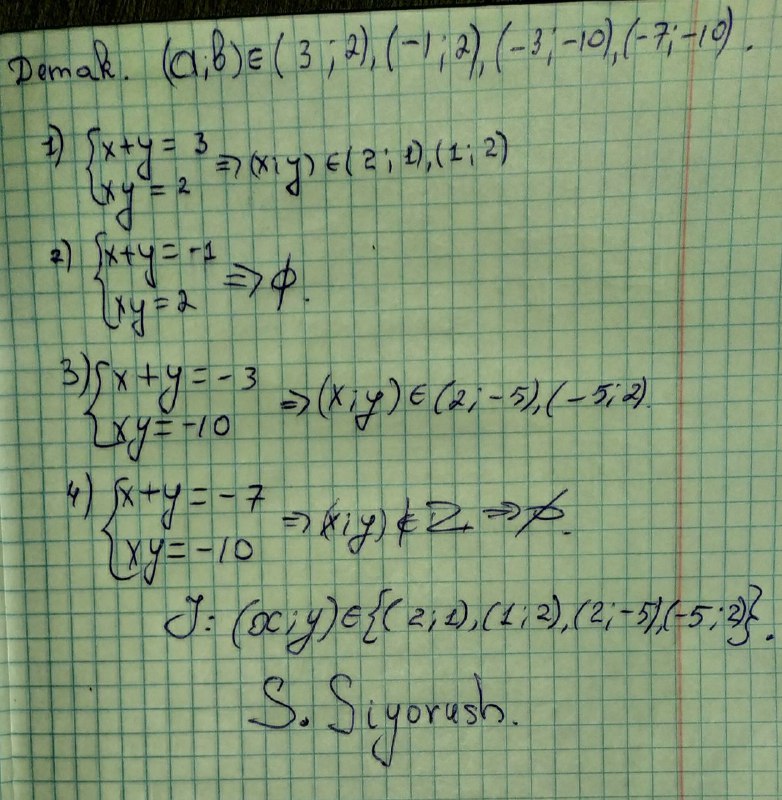 Demak. (a;b)∈(3;2),(-1;2),(-3;-10),(-7;-10).
1) {x+y=3
xy=2 ⇒(x;y)∈(2;1),(1;2)
2) {x+y=-1
xy=2 ⇒ϕ.
3) {x+y=-3
xy=-10 ⇒(x;y)∈(2;-5),(-5;2).
4) {x+y=-7
xy=-10 ⇒(x;y)∉Z ⇒ϕ.
J: (x;y)∈{(2;1),(1;2),(2;-5),(-5;2)}.
S. Siyorush.